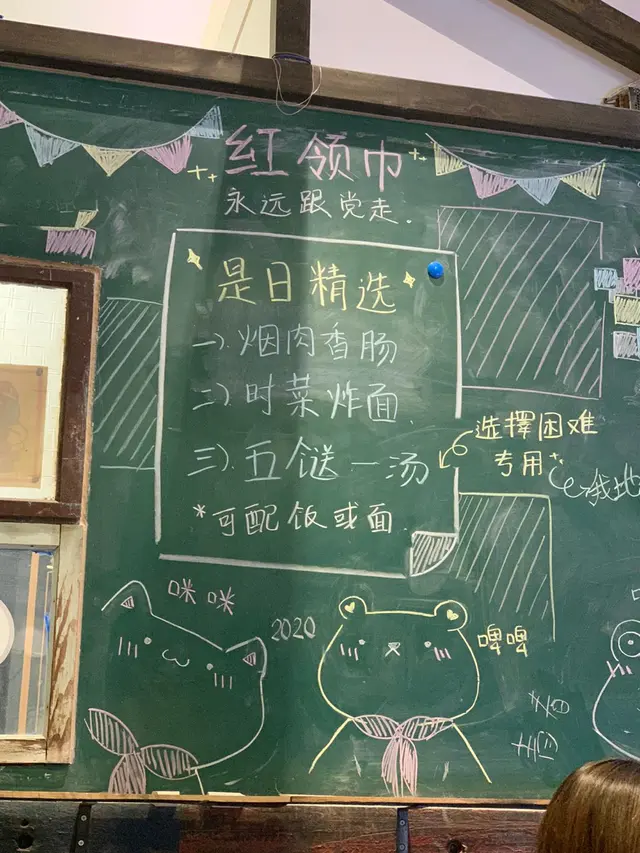 红领巾
永远跟党走.
是日精选
一).烟肉香肠
二).时菜炸面.
三).五餸一汤
*可配饭或面.
选擇困难
专用
咪咪
2020
啤啤